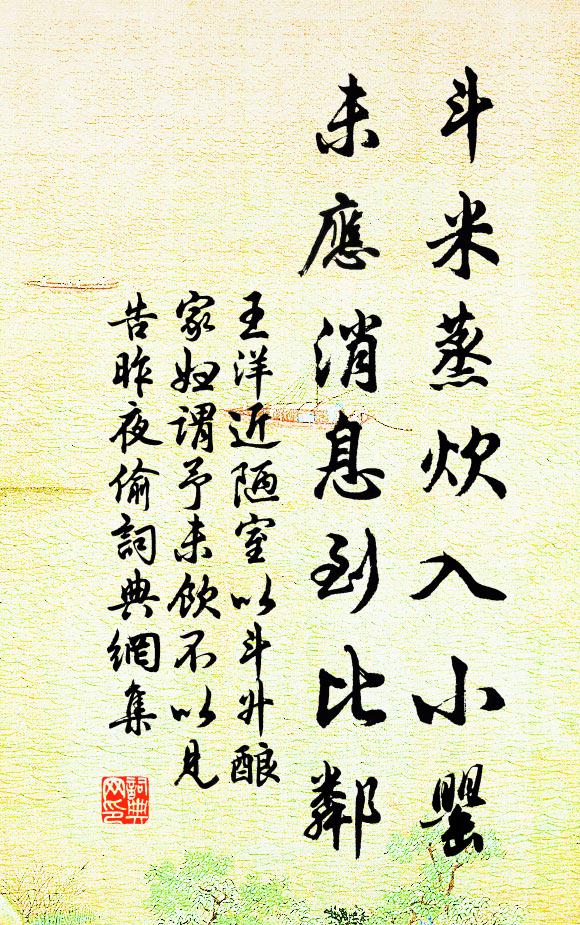 斗米蒸炊入小罌
未應消息到比鄰
王洋近陋室以斗升酿
家妇謂予未飲不以見
告昨夜偷詞典網集
詞典
网印